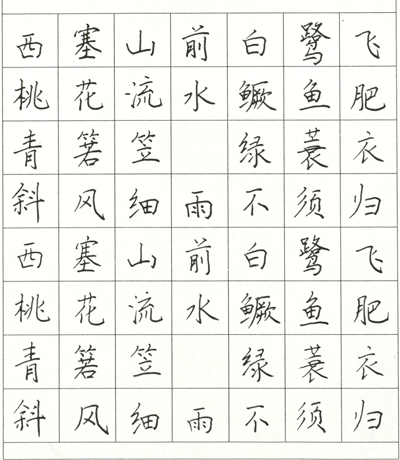 西塞山前白鹭飞
桃花流水鳜鱼肥
青箬笠 绿蓑衣
斜风细雨不须归
西塞山前白鹭飞
桃花流水鳜鱼肥
青箬笠 绿蓑衣
斜风细雨不须归